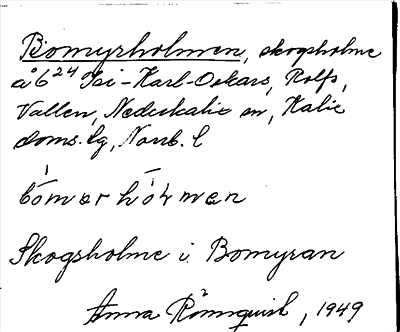 Bomyrholmen, skogsholme
å 6²⁴ Psi-Karl-Oskars, Rolfs,
Vallen, Nederkalix sn, Kalix
doms. lg, Norrb. l
bómerhólmen
Skogsholme i Bomyran
Anna Rönnquist, 1949